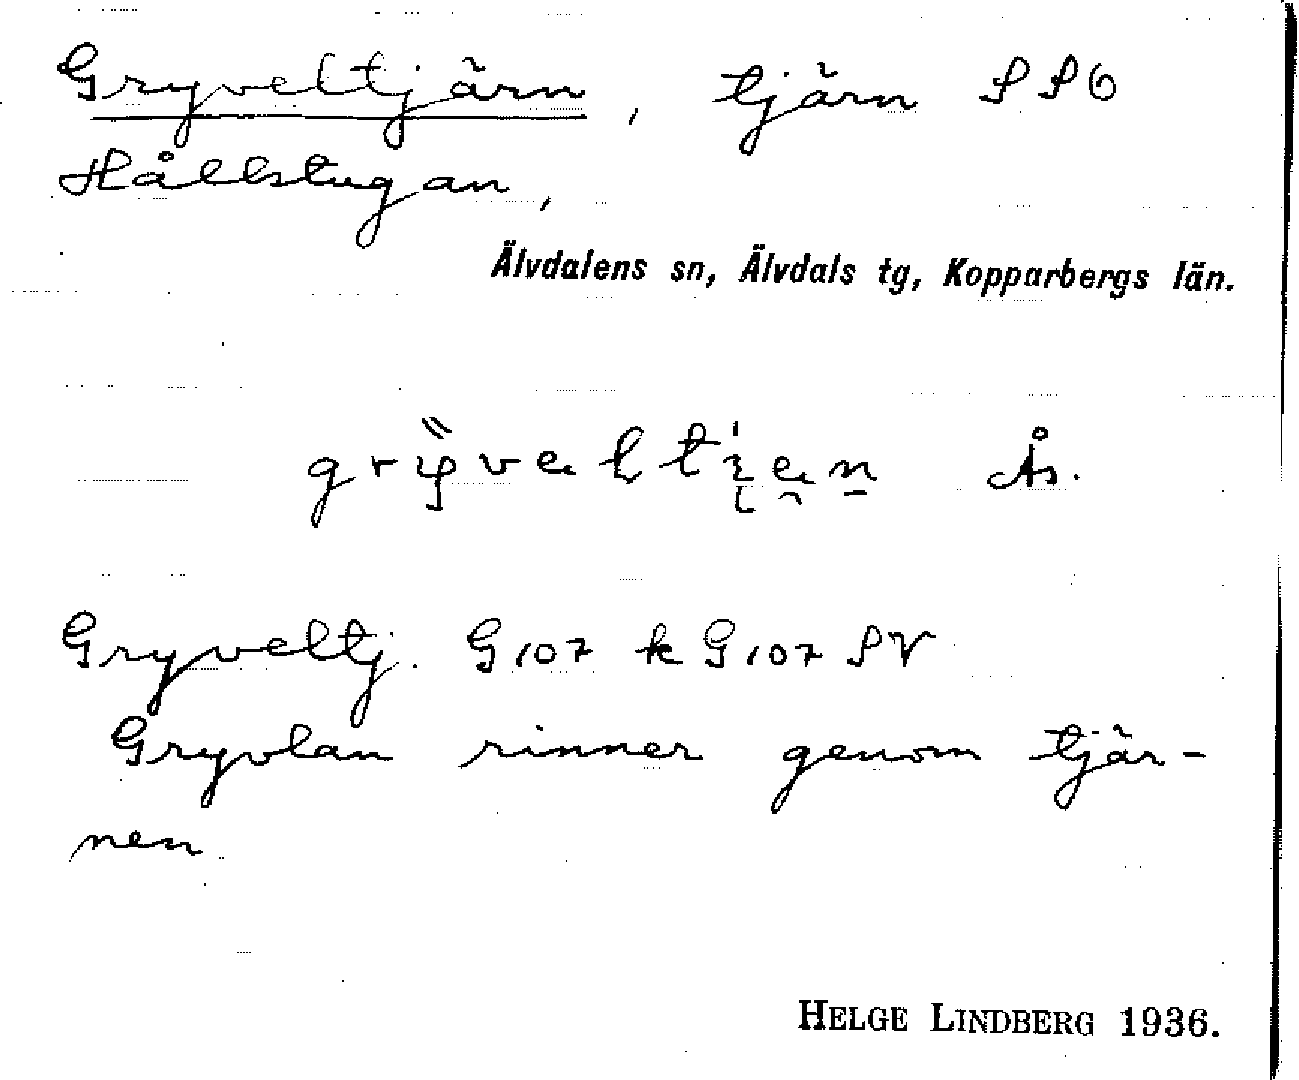 Gryveltjärn, tjärn SSO
Hållstugan,
Älvdalens sn, Älvdals tg, Kopparbergs län.
Ås.
Gryveltj. G107 k G107 SV
Gryvlan rinner genom tjär-
nen
HELGE LINDBERG 1936.